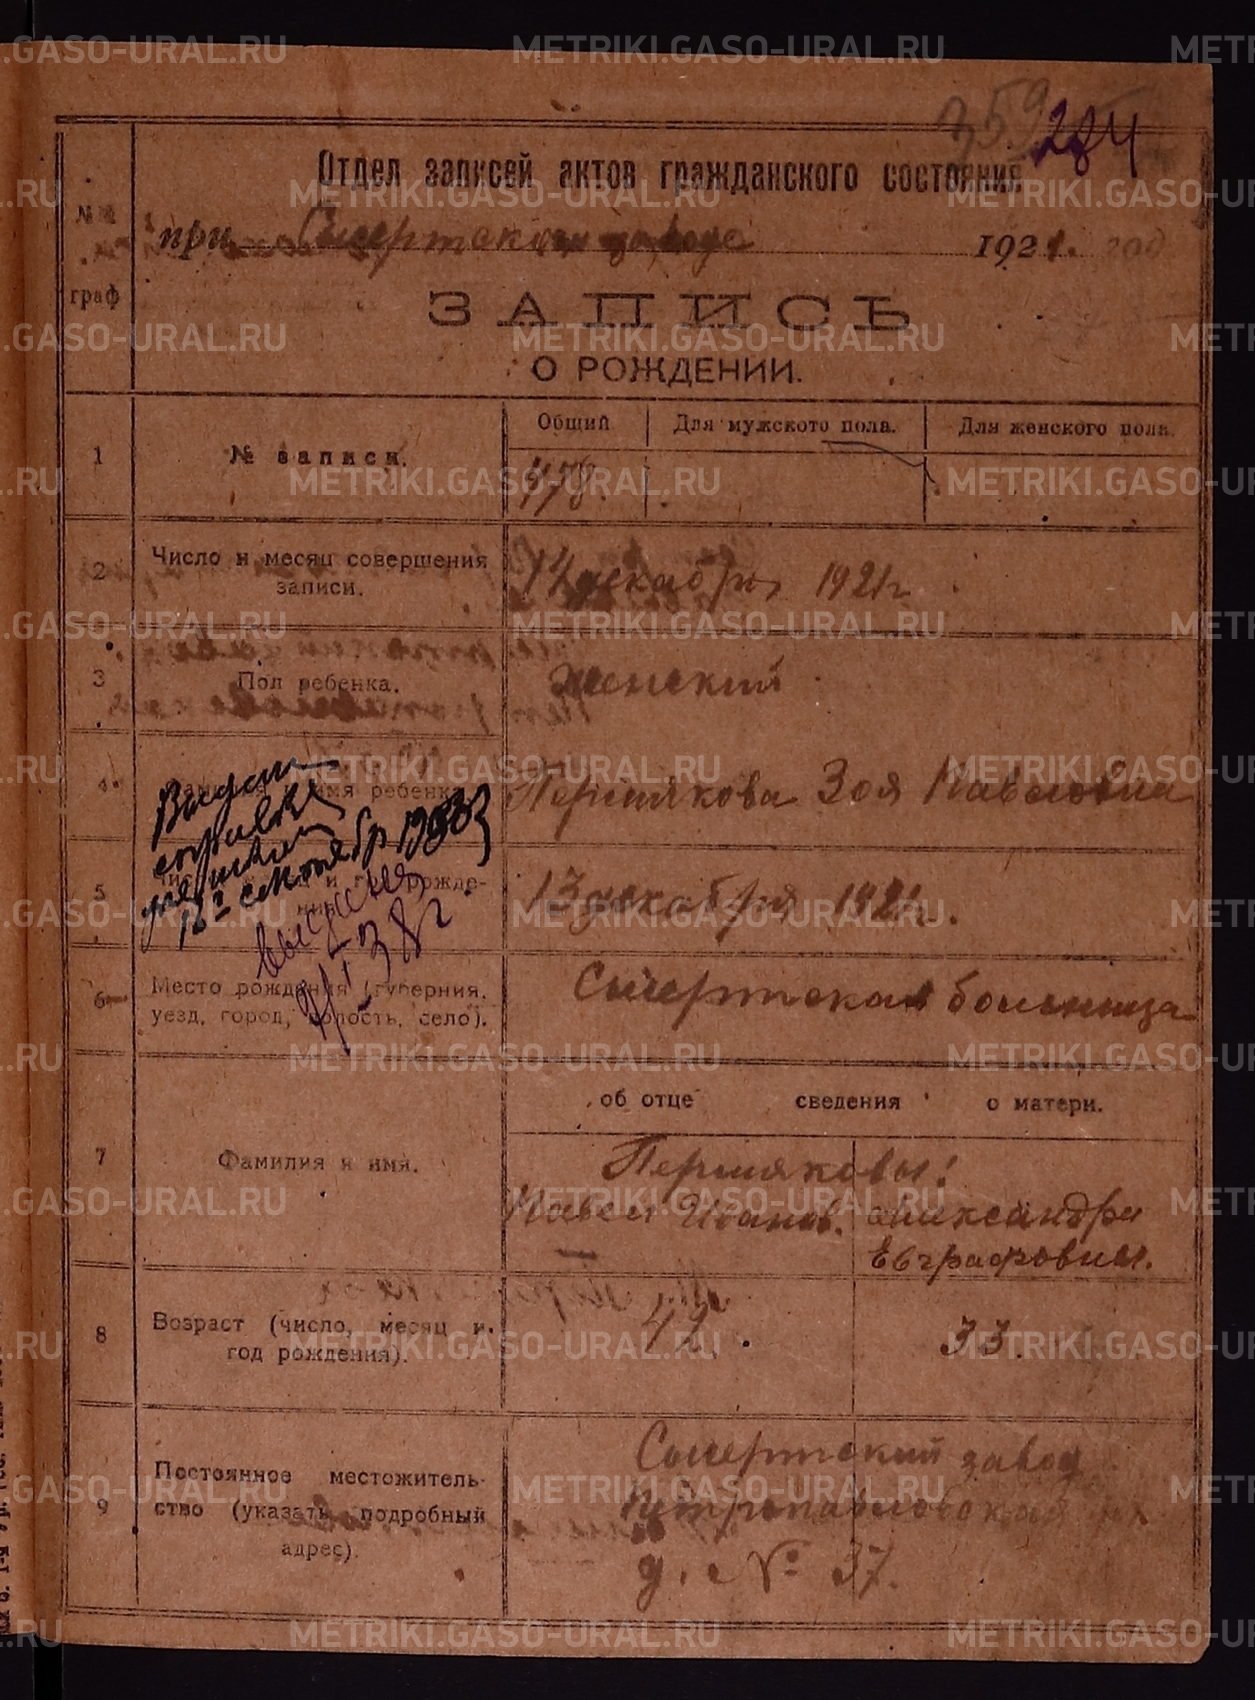 METRIKI.GASO-URAL.RU
359
284
Отдел записей актов гражданского состояния
при Сысертском заводе 1921. год
№№ граф
ЗАПИСЬ
О РОЖДЕНИИ.
1 № записи. Общий Для мужского пола. Для женского пола.
478.
2 Число и месяц совершения записи. 14 декабря 1921 г.
3 Пол ребенка. Женский
4 имя ребенка Пермякова Зоя Павловна
5 и рожде- 13 декабря 1921 г.
6 Место рождения (губерния, уезд, город, волость, село). Сысертская больница
об отце сведения о матери.
7 Фамилия и имя. Пермяковы:
Павел Иванов. Александра
Евграфовны.
8 Возраст (число, месяц и год рождения). 42. 33.
9 Постоянное местожитель-
ство (указать подробный
адрес).
Сысертский завод
Петропавловская
д. № 37.
справка
16го сентябр 1933
38 г.